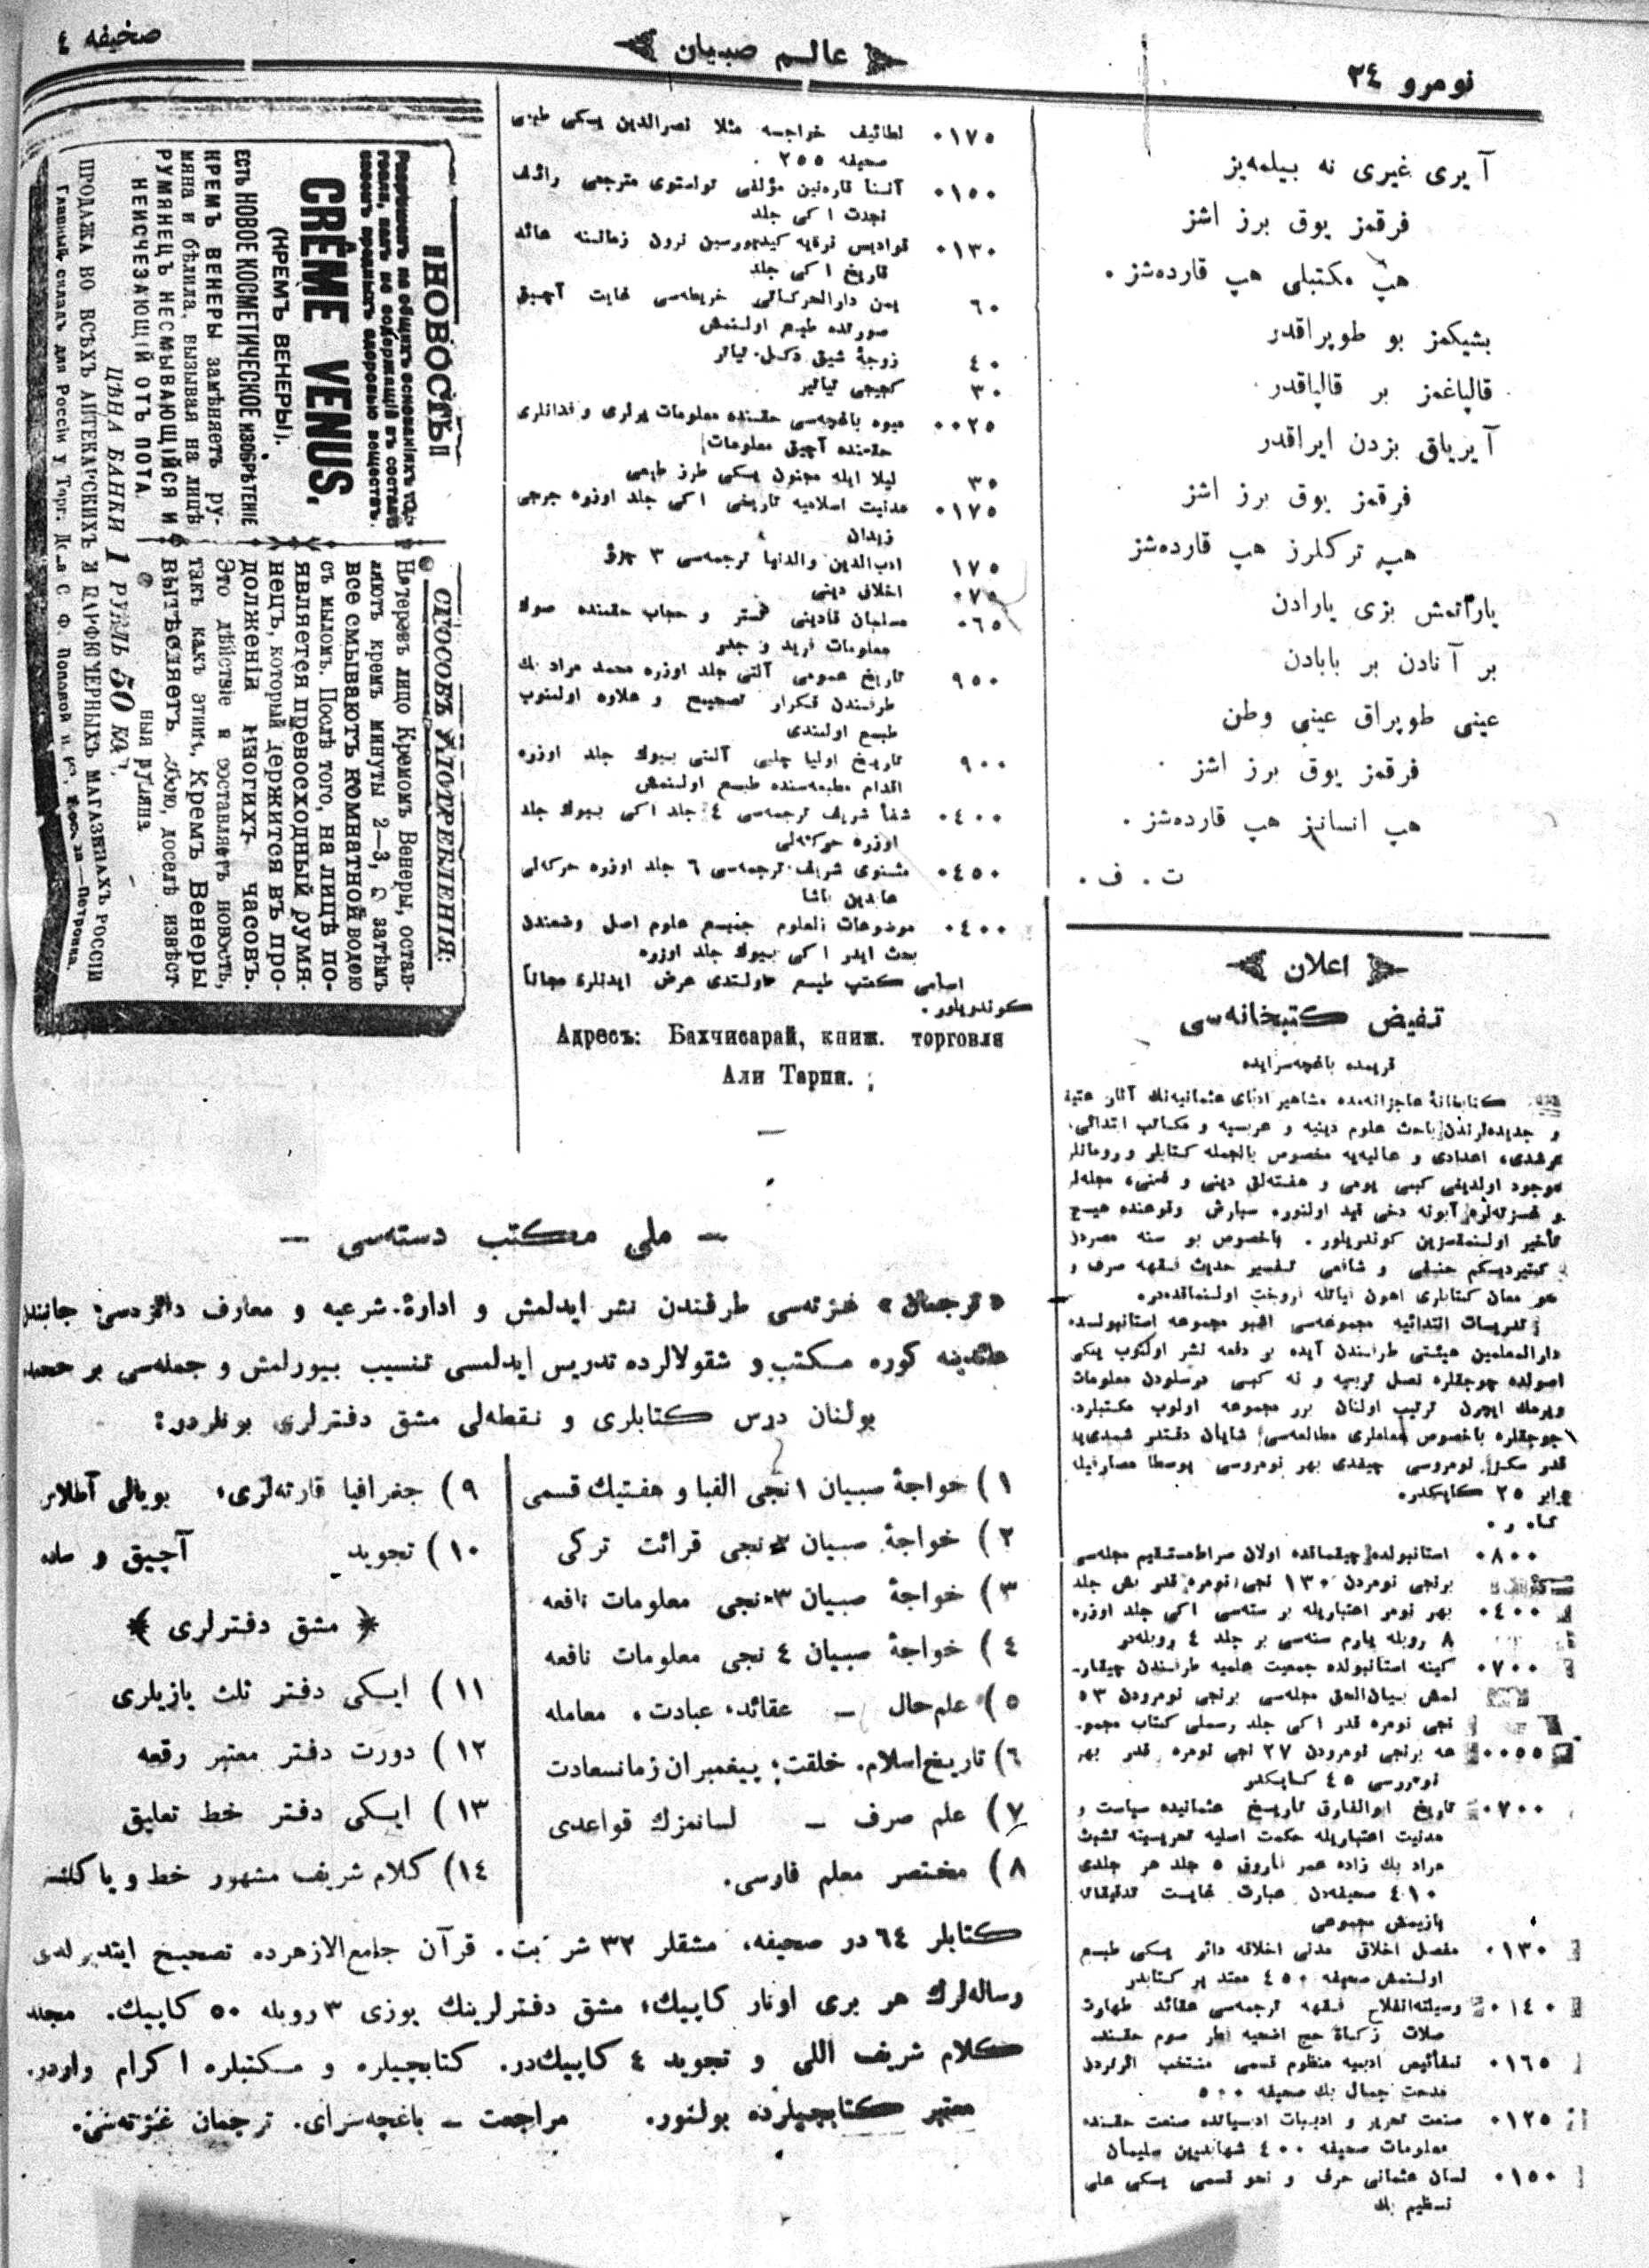 نومرو ٢٤
عالم صبیان
صحیفه ٤
آیری غیری نه بیلمه‌یز
فرقمز یوق برز اشز
هپ مکتبلی هپ قارده‌شز .
بشیکمز بو طوپراقدر
قالپاغمز بر قالپاقدر
آیریلق بزدن ایراقدر
فرقمز یوق برز اشز
هپ ترکلرز هپ قارده‌شز
یاراتمش بزی یارادن
بر آنادن بر بابادن
عینی طوپراق عینی وطن
فرقمز یوق برز اشز
هپ انسانز هپ قارده‌شز .
ت . ف .
اعلان
تفیض کتبخانه‌سی
قریمده باغچه‌سرایده
کتابخانهٔ عاجزانه‌مده مشاهیر ادبای عثمانیه‌نك آثار عتیقه
و جدیده‌لرندن باحث علوم دینیه و عربیه و مکاتب ابتدائی،
رشدی، اعدادی و عالیه‌یه مخصوص بالجمله کتابلر و رومانلر
موجود اولدیغی کبی یومی و هفته‌لق دینی و فنی، مجله‌لر
و غزته‌لره آبونه دخی قید اولنور. سپارش وقوعنده هیچ
تأخیر اولنمقسزین کوندریلور . باخصوص بو سنه مصردن
کتیردیکم حنفی و شافعی تفسیر حدیث فقهه صرف و
تدریسات ابتدائیه مجموعه‌سی اشبو مجموعه استانبولده
دارالمعلمین هیئتی طرفندن آیده بر دفعه نشر اولنوب یکی
اصولده چوجقلره نصل تربیه و نه کبی درسلردن معلومات
ویرمك ایچون ترتیب اولنان بر مجموعه اولوب مکتبلرده
چوجقلره باخصوص معلملری مطالعه‌سی شایان دقتدر شمدی‌یه
قدر سکز نومروسی چیقدی بهر نومروسی پوسطا مصارفیله
برابر ٢٥ کاپکدر.
٠٨٠٠ استانبولده چیقماقده اولان صراط‌مستقیم مجله‌سی
برنجی نومردن ١٣٠ نجی نومره قدر بش جلد
٠٤٠٠ بهر نومر اعتباریله بر سنه‌سی ایکی جلد اوزره
٨ روبله یارم سنه‌سی بر جلد ٤ روبله‌در
٠٧٠٠ کینه استانبولده جمعیت علمیه طرفندن چیقار-
لمش بیان‌الحق مجله‌سی برنجی نومرودن ٥٣
نجی نومره قدر ایکی جلد رسملی کتاب مجمو-
٠٠٥٥ عه برنجی نومرودن ٢٧ نجی نومره قدر بهر
نومروسی ٤٥ کاپکدر
٠٧٠٠ تاریخ ابوالفاروق تاریخ عثمانیده سیاست و
مدنیت اعتباریله حکمت اصلیه تحریسنه تشبث
مراد بك زاده عمر فاروق ٥ جلد هر جلدی
٤١٠ صحیفه‌دن عبارت غایت تدقیقاتله
یازیمش مجموعی
٠١٣٠ مفصل اخلاق مدنی اخلاقه دائر یکی طبع
اولنمش صحیفه ٤٥٠ معتد بر کتابدر
٠١٤٠ وسیلةالفلاح فقهه ترجمه‌سی عقائد طهارت
صلات زکاة حج اضحیه فطر صوم حقنده
٠١٦٥ نفائیس ادبیه منظوم قسمی منتخب اثرلردن
مدحت جمال بك صحیفه ٥٠٠
٠١٢٥ صنعت تحریر و ادبیات ادبیاتده صنعت حقنده
معلومات صحیفه ٤٠٠ شهابدین سلیمان
٠١٥٠ لسان عثمانی صرف و نحو قسمی یکی علی
نظیم بك
٠١٧٥ لطائیف خواجه مثلا نصرالدین یکی طبعی
صحیفه ٢٥٥ .
٠١٥٠ آننا قاره‌نین مؤلفی تولستوی مترجمی رائف
نجدت ایکی جلد
٠١٣٠ قوادیس نرقیه کیدییورسین نرون زماننه عائد
تاریخ ایکی جلد
٦٠ یمن دارالحرکاتی خریطه‌سی غایت آچیق
صورتده طبع اولنمش
٤٠ زوجهٔ شیق دکل تیاتر
٣٠ کجیجی تیاتیر
٠٠٢٥ میوه باغچه‌سی حقنده معلومات یرلری و فدانلری
حقنده آچیق معلومات
٣٥ لیلا ایله مجنون یکی طرز طبعی
٠١٧٥ مدنیت اسلامیه تاریخی ایکی جلد اوزره جرجی
زیدان
١٧٥ ادب‌الدین والدنیا ترجمه‌سی ٣ جزؤ
٠٧٥ اخلاق دینی
٠٦٥ مسلمان قادینی تستر و حجاب حقنده صوك
معلومات فرید و جدو
٩٥٠ تاریخ عمومی آلتی جلد اوزره محمد مراد بك
طرفندن تکرار تصحیح و علاوه اولنوب
طبع اولندی
٩٠٠ تاریخ اولیا چلبی آلتی بیوك جلد اوزره
اقدام مطبعه‌سنده طبع اولنمش
٠٤٠٠ شفأ شریف ترجمه‌سی ٤ جلد ایکی بیوك جلد
اوزره حرکه‌لی
٠٤٥٠ مثنوی شریف ترجمه‌سی ٦ جلد اوزره حرکه‌لی
عابدین پاشا
٠٤٠٠ موضوعات العلوم جمیع علوم اصل وضعندن
بحث ایدر ایکی بیوك جلد اوزره
اسامی کتب طبع اولندی عرض ایدنلره مجاناً
کوندریلور .
Адресъ: Бахчисарай, книж. торговля
Али Тарпи.
НОВОСТЬ!!
CRÊME VENUS,
(КРЕМЪ ВЕНЕРЫ).
ЕСТЬ НОВОЕ КОСМЕТИЧЕСКОЕ ИЗОБРѢТЕНІЕ
КРЕМЪ ВЕНЕРЫ замѣняетъ ру-
мяна и бѣлила, вызывая на лицѣ
РУМЯНЕЦЪ НЕСМЫВАЮЩІЙСЯ И
НЕИСЧЕЗАЮЩІЙ ОТЪ ПОТА.
СПОСОБЪ УПОТРЕБЛЕНІЯ:
Натеревъ лицо Кремомъ Венеры, остав-
ляютъ кремъ минуты 2—3, а затѣмъ
все смываютъ комнатной водою
съ мыломъ. Послѣ того, на лицѣ по-
является превосходный румя-
нецъ, который держится въ про-
долженіи многихъ часовъ.
Это дѣйствіе и составляетъ новость,
такъ какъ этимъ, Кремъ Венеры
вытѣсняетъ собою, доселѣ извѣст-
ныя румяна.
ЦѢНА БАНКИ 1 РУБЛЬ 50 КОП.
ПРОДАЖА ВО ВСѢХЪ АПТЕКАРСКИХЪ И ПАРФЮМЕРНЫХЪ МАГАЗИНАХЪ РОССІИ
Главный складъ для Россіи у Торг. Дома С. Ф. Поповой и
— ملی مکتب دسته‌سی —
«ترجمان» غزته‌سی طرفندن نشر ایدلمش و ادارهٔ شرعیه و معارف دائره‌سی جانبندن
عائدینه کوره مکتب و شقولالرده تدریس ایدلمسی تنسیب بیورلمش و جمله‌سی بر
بولنان درس کتابلری و نقطه‌لی مشق دفترلری بونلردر:
١) خواجهٔ صبیان ١ نجی الفبا و هفتیك قسمی
٢) خواجهٔ صبیان ٢ نجی قرائت ترکی
٣) خواجهٔ صبیان ٣ نجی معلومات نافعه
٤) خواجهٔ صبیان ٤ نجی معلومات نافعه
٥) علم‌حال — عقائد، عبادت، معامله
٦) تاریخ‌اسلام. خلقت؛ پیغمبران زمانسعادت
٧) علم صرف — لسانمزك قواعدی
٨) مختصر معلم فارسی.
٩) جغرافیا قارته‌لری، بویالی آطلاس
١٠) تجوید آچیق و ساده
مشق دفترلری
١١) ایکی دفتر ثلث یازیلری
١٢) دورت دفتر معتبر رقعه
١٣) ایکی دفتر خط تعلیق
١٤) کلام شریف مشهور خط و پاکلسه
کتابلر ٦٤ در صحیفه، مشقلر ٣٢ شر بت. قرآن جامع‌الازهرده تصحیح ایتدیرلدی
رساله‌لرك هر بری اونار کاپیك؛ مشق دفترلرینك یوزی ٣ روبله ٥٠ کاپیك. مجلد
کلام شریف اللی و تجوید ٤ کاپیك‌در. کتابچیلره و مکتبلره اکرام واردر.
معتبر کتابچیلرده بولنور. مراجعت — باغچه‌سرای. ترجمان غزته‌سی.